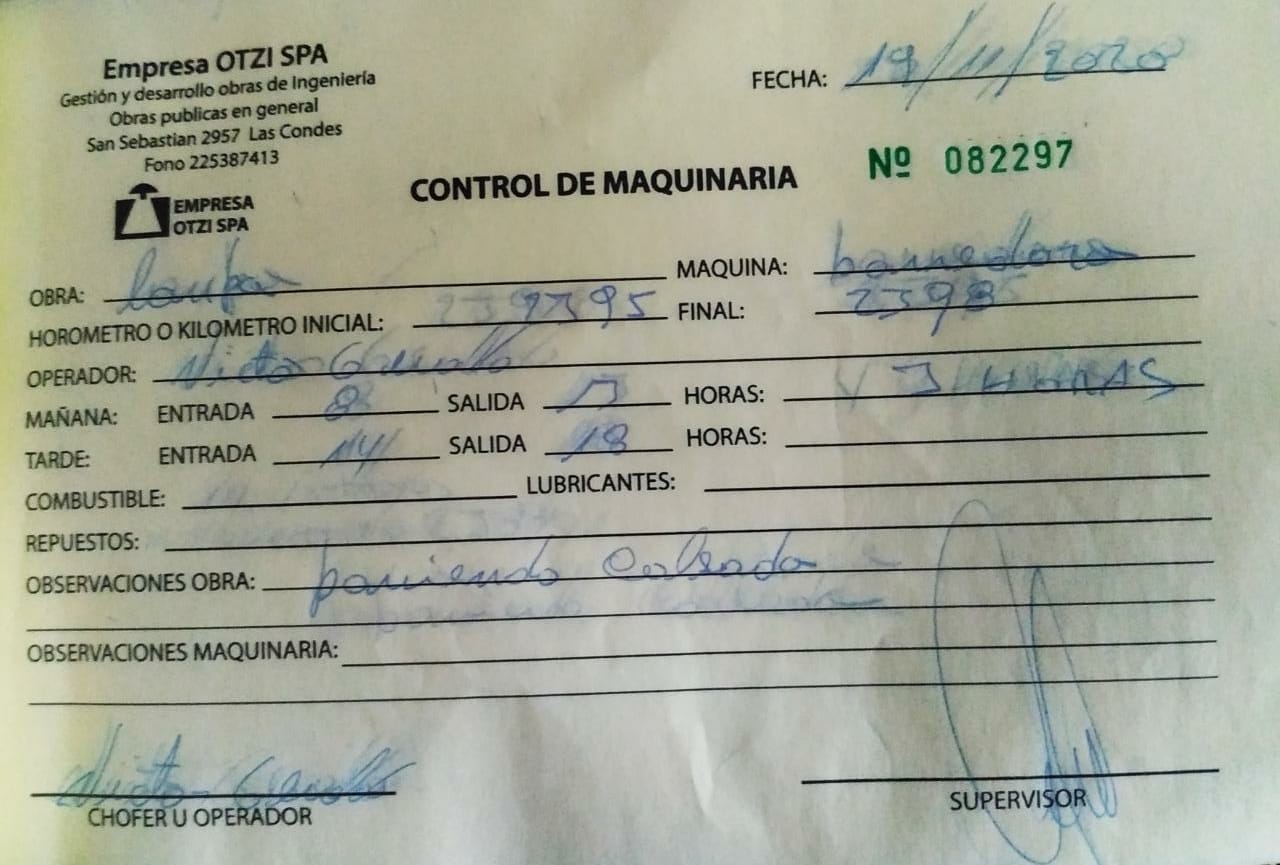 Empresa OTZI SPA
Gestión y desarrollo obras de Ingeniería
Obras publicas en general
San Sebastian 2957 Las Condes
Fono 225387413
EMPRESA
OTZI SPA
FECHA: 19/11/2020
Nº 082297
CONTROL DE MAQUINARIA
OBRA: MAQUINA: barredora
HOROMETRO O KILOMETRO INICIAL: FINAL: 2398
OPERADOR: Victor
MAÑANA: ENTRADA 8 SALIDA 13 HORAS: HORAS
TARDE: ENTRADA 14 SALIDA 18 HORAS:
COMBUSTIBLE: LUBRICANTES:
REPUESTOS:
OBSERVACIONES OBRA: barriendo Calzada
OBSERVACIONES MAQUINARIA:
Victor
CHOFER U OPERADOR
SUPERVISOR